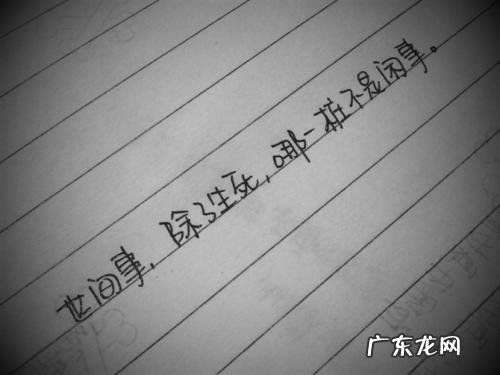 世间事，除了生死，哪一桩不是闲事。
广东龙网